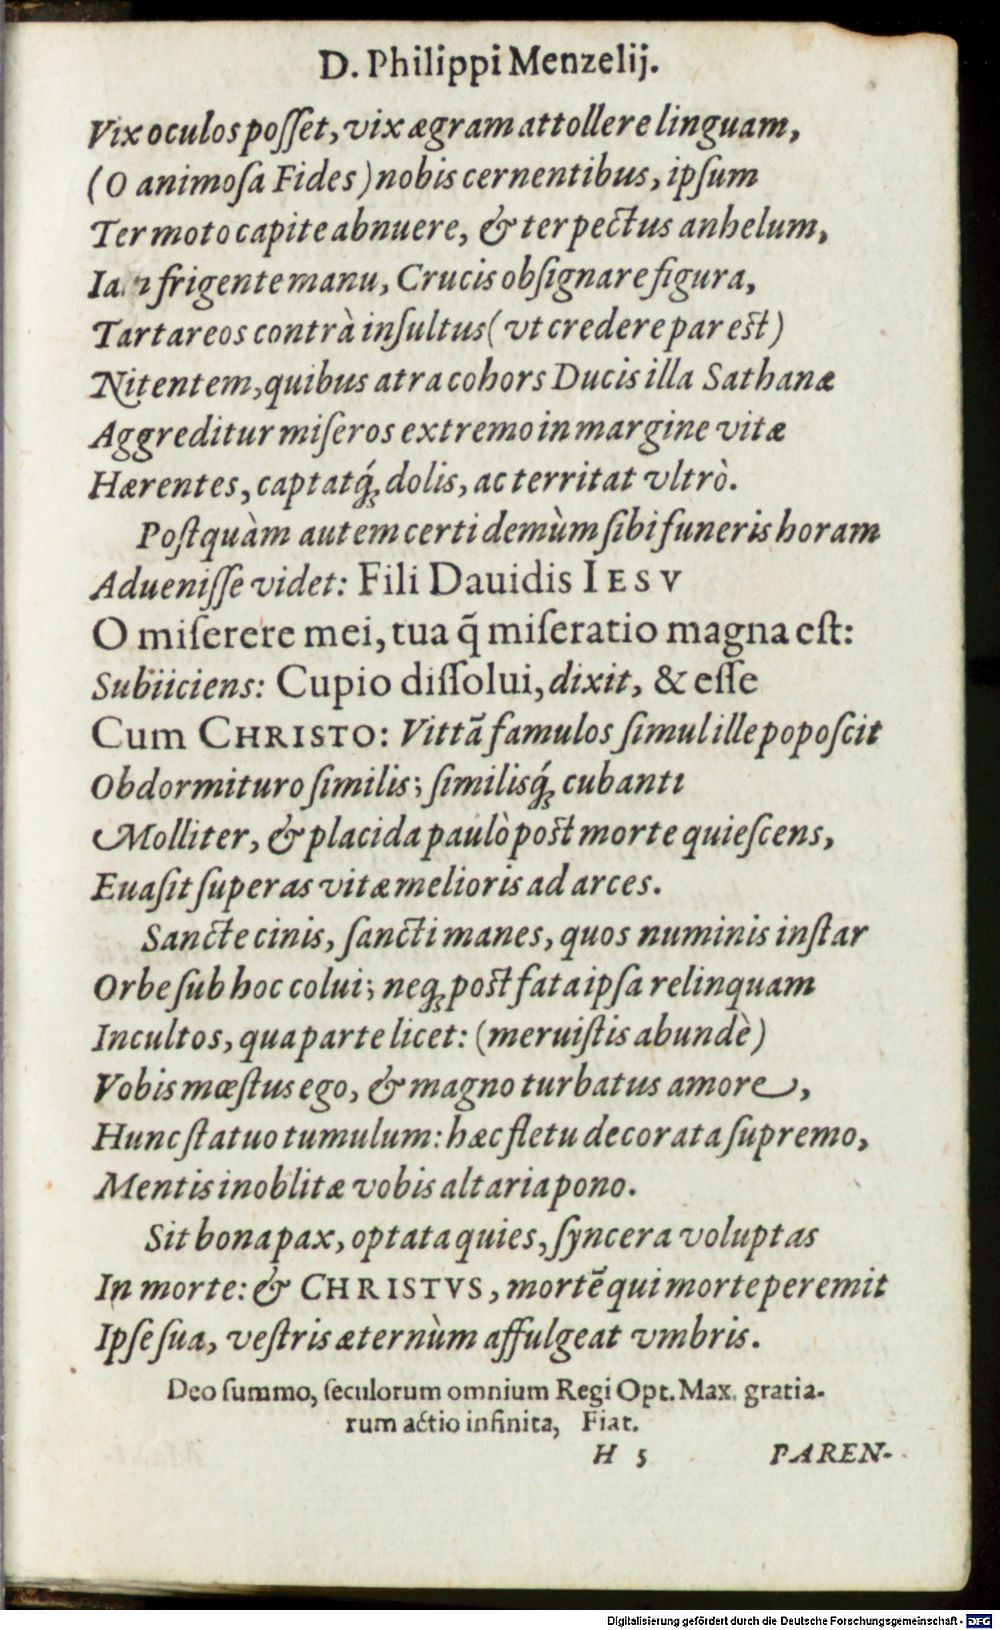 D. Philippi Menzelij.
Vix oculos poſſet, vix ægram attollere linguam,
(O animoſa Fides) nobis cernentibus, ipſum
Ter moto capite abnuere, & ter pectus anhelum,
frigente manu, Crucis obſignare figura,
Tartareos contrà inſultus (vt credere par eſt)
Nitentem, quibus atra cohors Ducis illa Sathanæ
Aggreditur miſeros extremo in margine vitæ
Hærentes, captatq́; dolis, ac territat vltrò.
Poſtquàm autem certi demùm ſibi funeris horam
Adueniſſe videt: Fili Dauidis IESV
O miſerere mei, tua q̃ miſeratio magna eſt:
Subiiciens: Cupio diſſolui, dixit, & eſſe
Cum CHRISTO: Vittã famulos ſimul ille popoſcit
Obdormituro ſimilis; ſimilisq́; cubanti
Molliter, & placida paulò poſt morte quieſcens,
Euaſit ſuperas vitæ melioris ad arces.
Sancte cinis, ſancti manes, quos numinis inſtar
Orbe ſub hoc colui; neq; poſt fata ipſa relinquam
Incultos, qua parte licet: (meruiſtis abundè)
Vobis mœſtus ego, & magno turbatus amore,
Hunc ſtatuo tumulum: hæc fletu decorata ſupremo,
Mentis inoblitæ vobis altaria pono.
Sit bona pax, optata quies, ſyncera voluptas
In morte: & CHRISTVS, mortẽ qui morte peremit
Ipſe ſua, veſtris æternùm affulgeat vmbris.
Deo ſummo, ſeculorum omnium Regi Opt. Max. gratia-
rum actio infinita, Fiat.
H 5 PAREN-
Digitalisierung gefördert durch die Deutsche Forschungsgemeinschaft - DFG